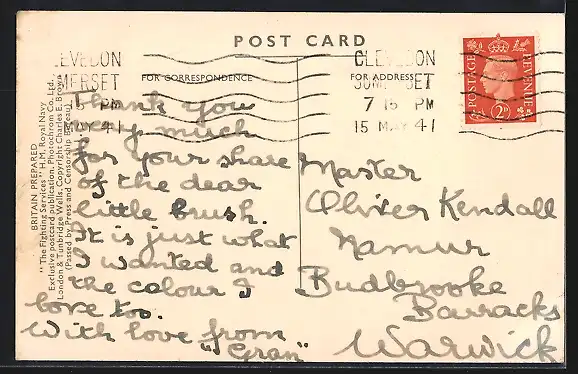 POST CARD
CLEVEDON
SOMERSET
PM
41
CLEVEDON
SOMERSET
7 15 PM
15 MAY 41
FOR CORRESPONDENCE
FOR ADDRESS
POSTAGE
REVENUE
2D
BRITAIN PREPARED
"The Fighting Services" H.M. Royal Navy
Exclusive postcard publication. Photochrom Co. Ltd.
London & Tunbridge Wells. Copyright Charles E. Brown
(Passed by Press and Censorship Bureau)
Thank you
very much
for your share
of the dear
little brush.
It is just what
I wanted and
the colour I
love too.
With love from
"Gran"
Master
Oliver Kendall
Namur
Budbrooke
Barracks
Warwick